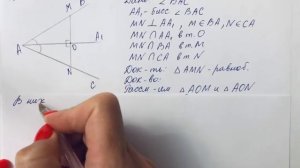 Дано: ∠ BAC
AA₁ - бисс ∠ BAC
MN ⊥ AA₁, M∈BA, N∈CA
MN ∩ AA₁ в т. O
MN ∩ BA в т. M
MN ∩ CA в т. N
Док-ть: △ AMN - равноб.
Док-во:
Рассм-им △ AOM и △ AON
В них
M
B
A
O
A₁
N
C